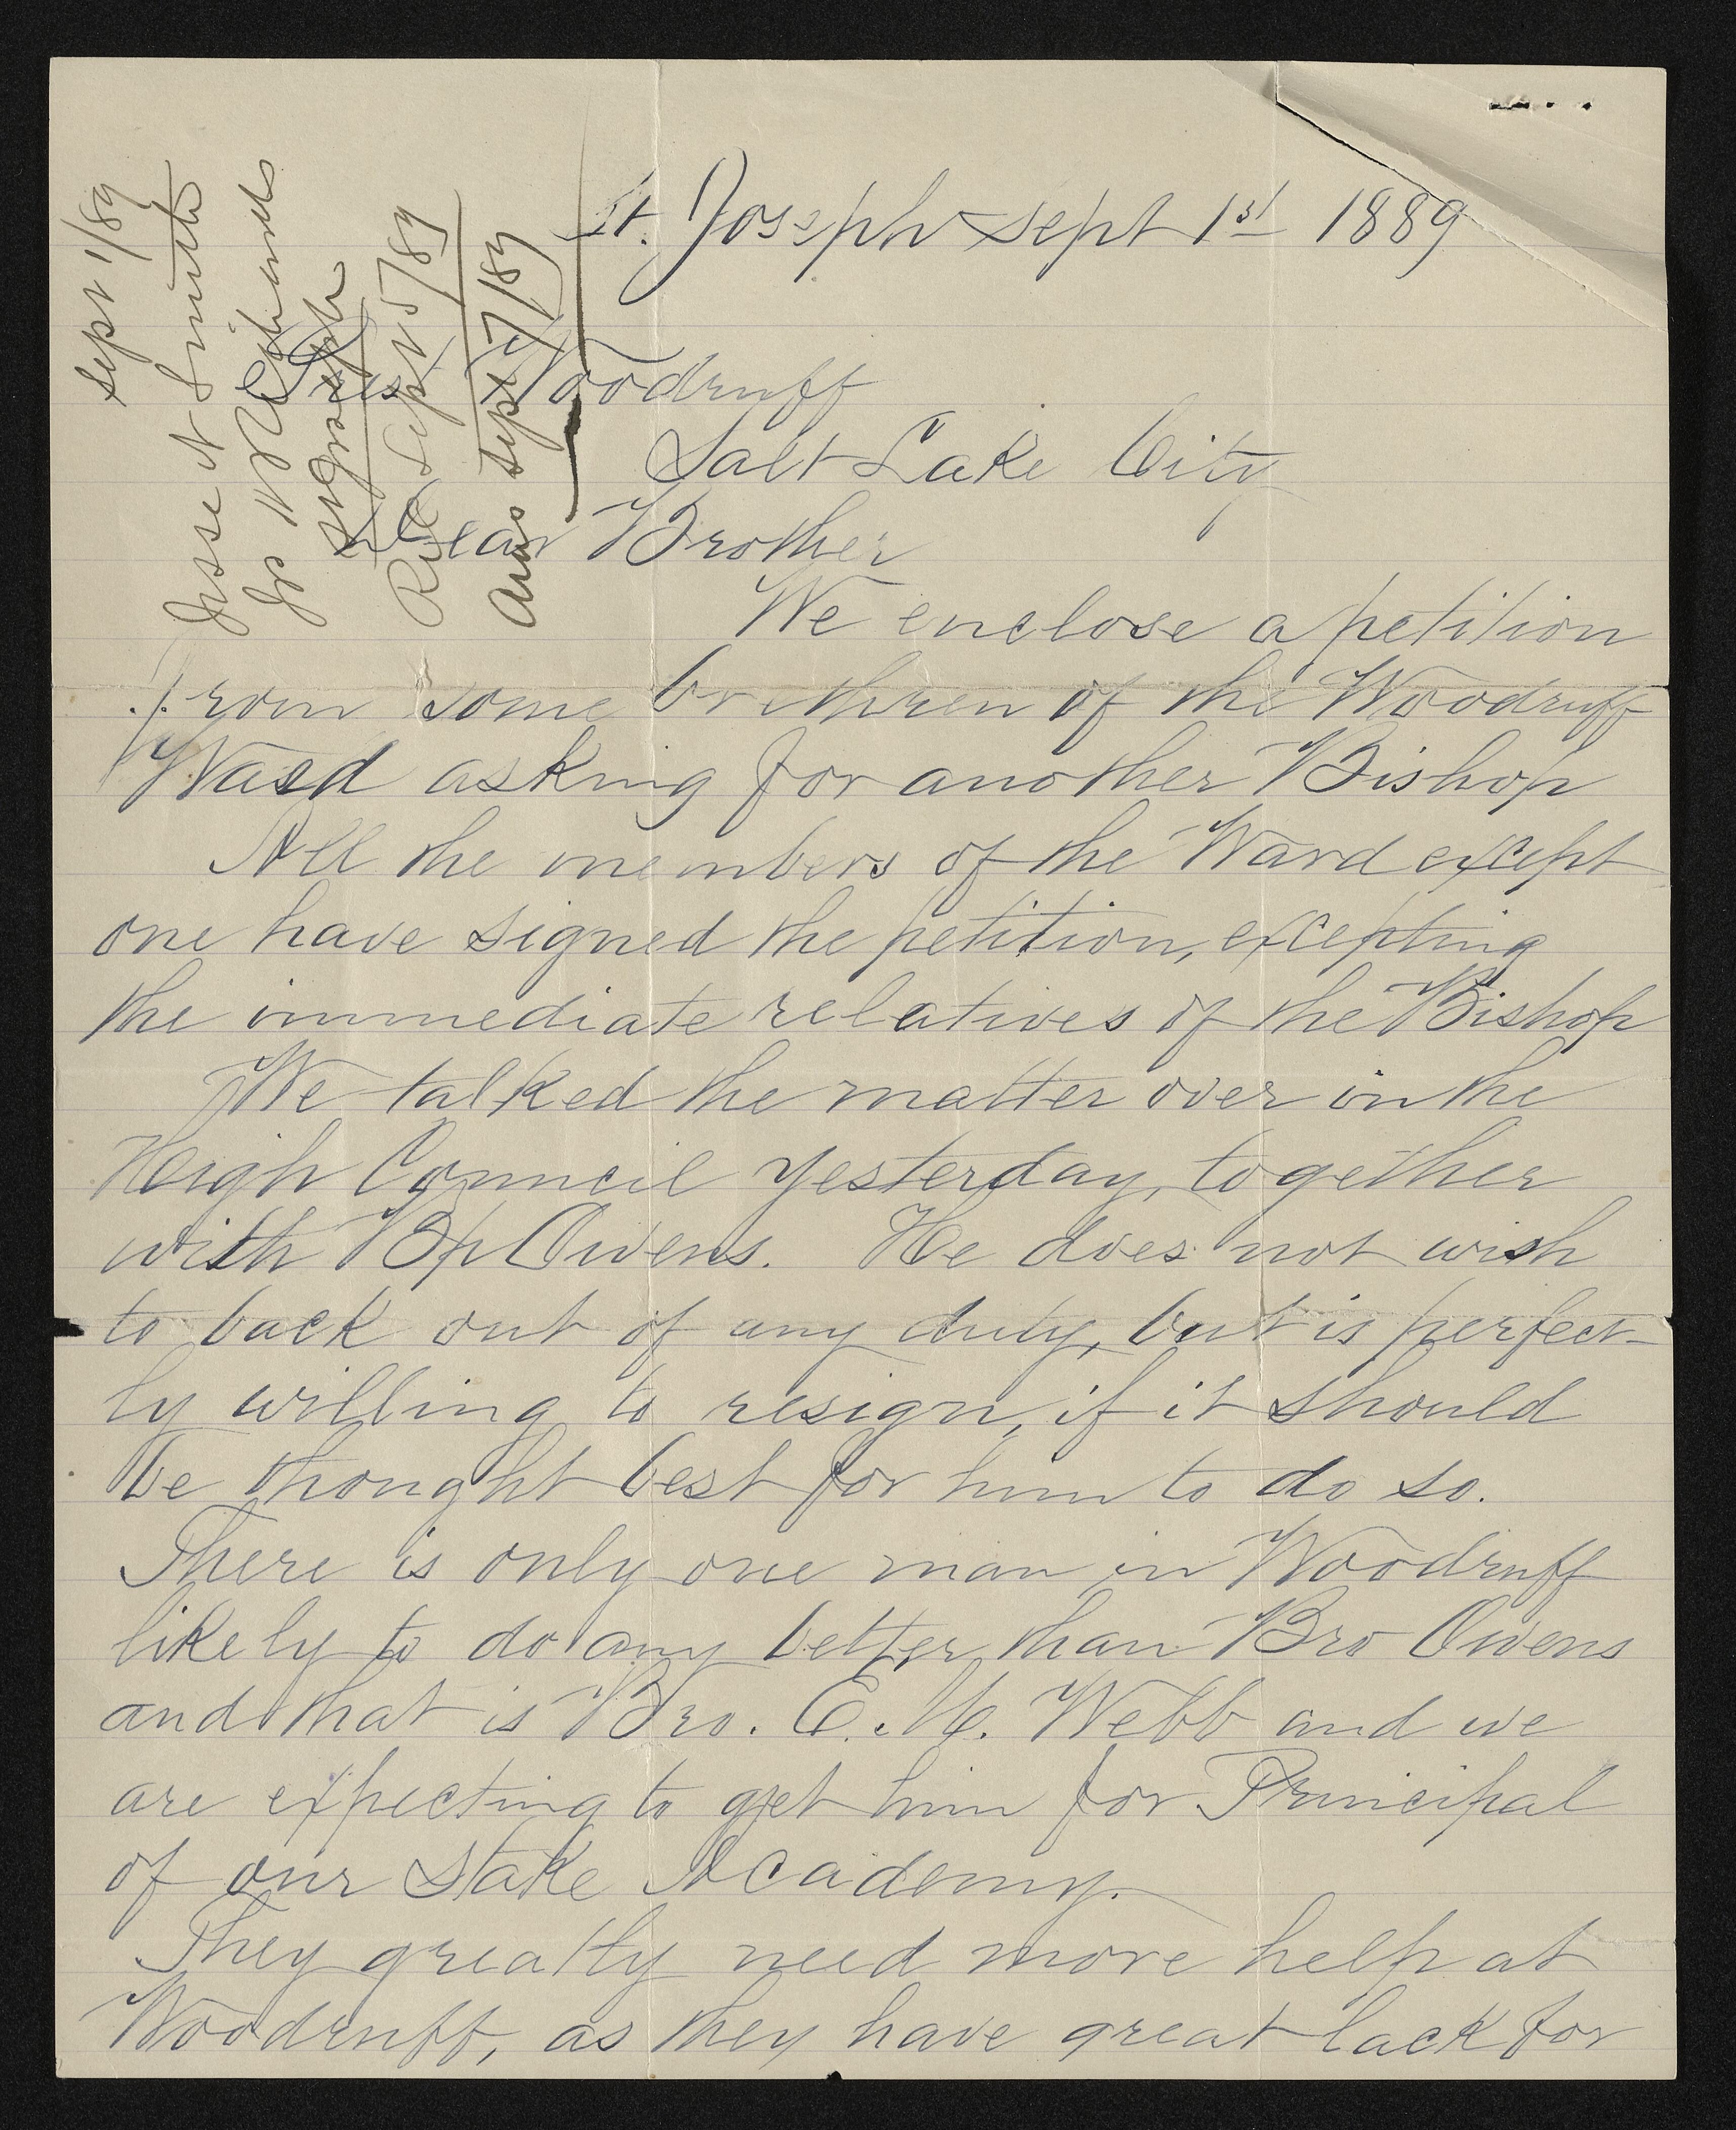 Sept 1/89
Jesse N Smith
Jos H Richards
St Joseph
Rec Sept 5/89
Ans Sept 7/89
St. Joseph Sept 1st 1889
Pres Woodruff
Salt Lake City
Dear Brother
We enclose a petition
from some brethren of the Woodruff
Ward asking for another Bishop
All the members of the Ward except
one have signed the petition, excepting
the immediate relatives of the Bishop
We talked the matter over in the
High Council yesterday, together
with Bp Owens. He does not wish
to back out of any duty, but is perfect-
ly willing to resign, if it should
be thought best for him to do so.
There is only one man in Woodruff
likely to do any better than Bro Owens
and that is Bro. E. M. Webb and we
are expecting to get him for Principal
of our Stake Academy.
They greatly need more help at
Woodruff, as they have great lack for